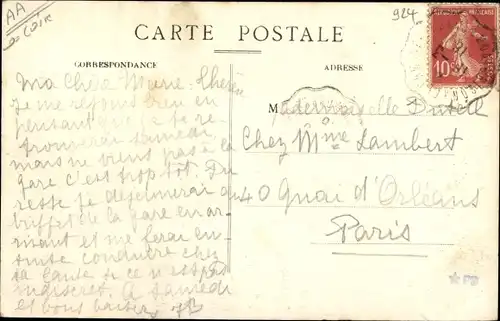 AA
924
CARTE POSTALE
CORRESPONDANCE
ADRESSE
10
Ma Chère Marie-Thérèse
Je me réjouis bien en
pensant que je te re-
trouverai samedi
mais ne viens pas à la
gare c'est trop tôt. Du
reste je déjeunerai au
buffet de la gare en ar-
rivant et me ferai en-
suite conduire chez
ta tante si ce n'est pas
indiscret. A samedi
et bons baisers
Mademoiselle
Chez Mme Lambert
40 Quai d'Orléans
Paris